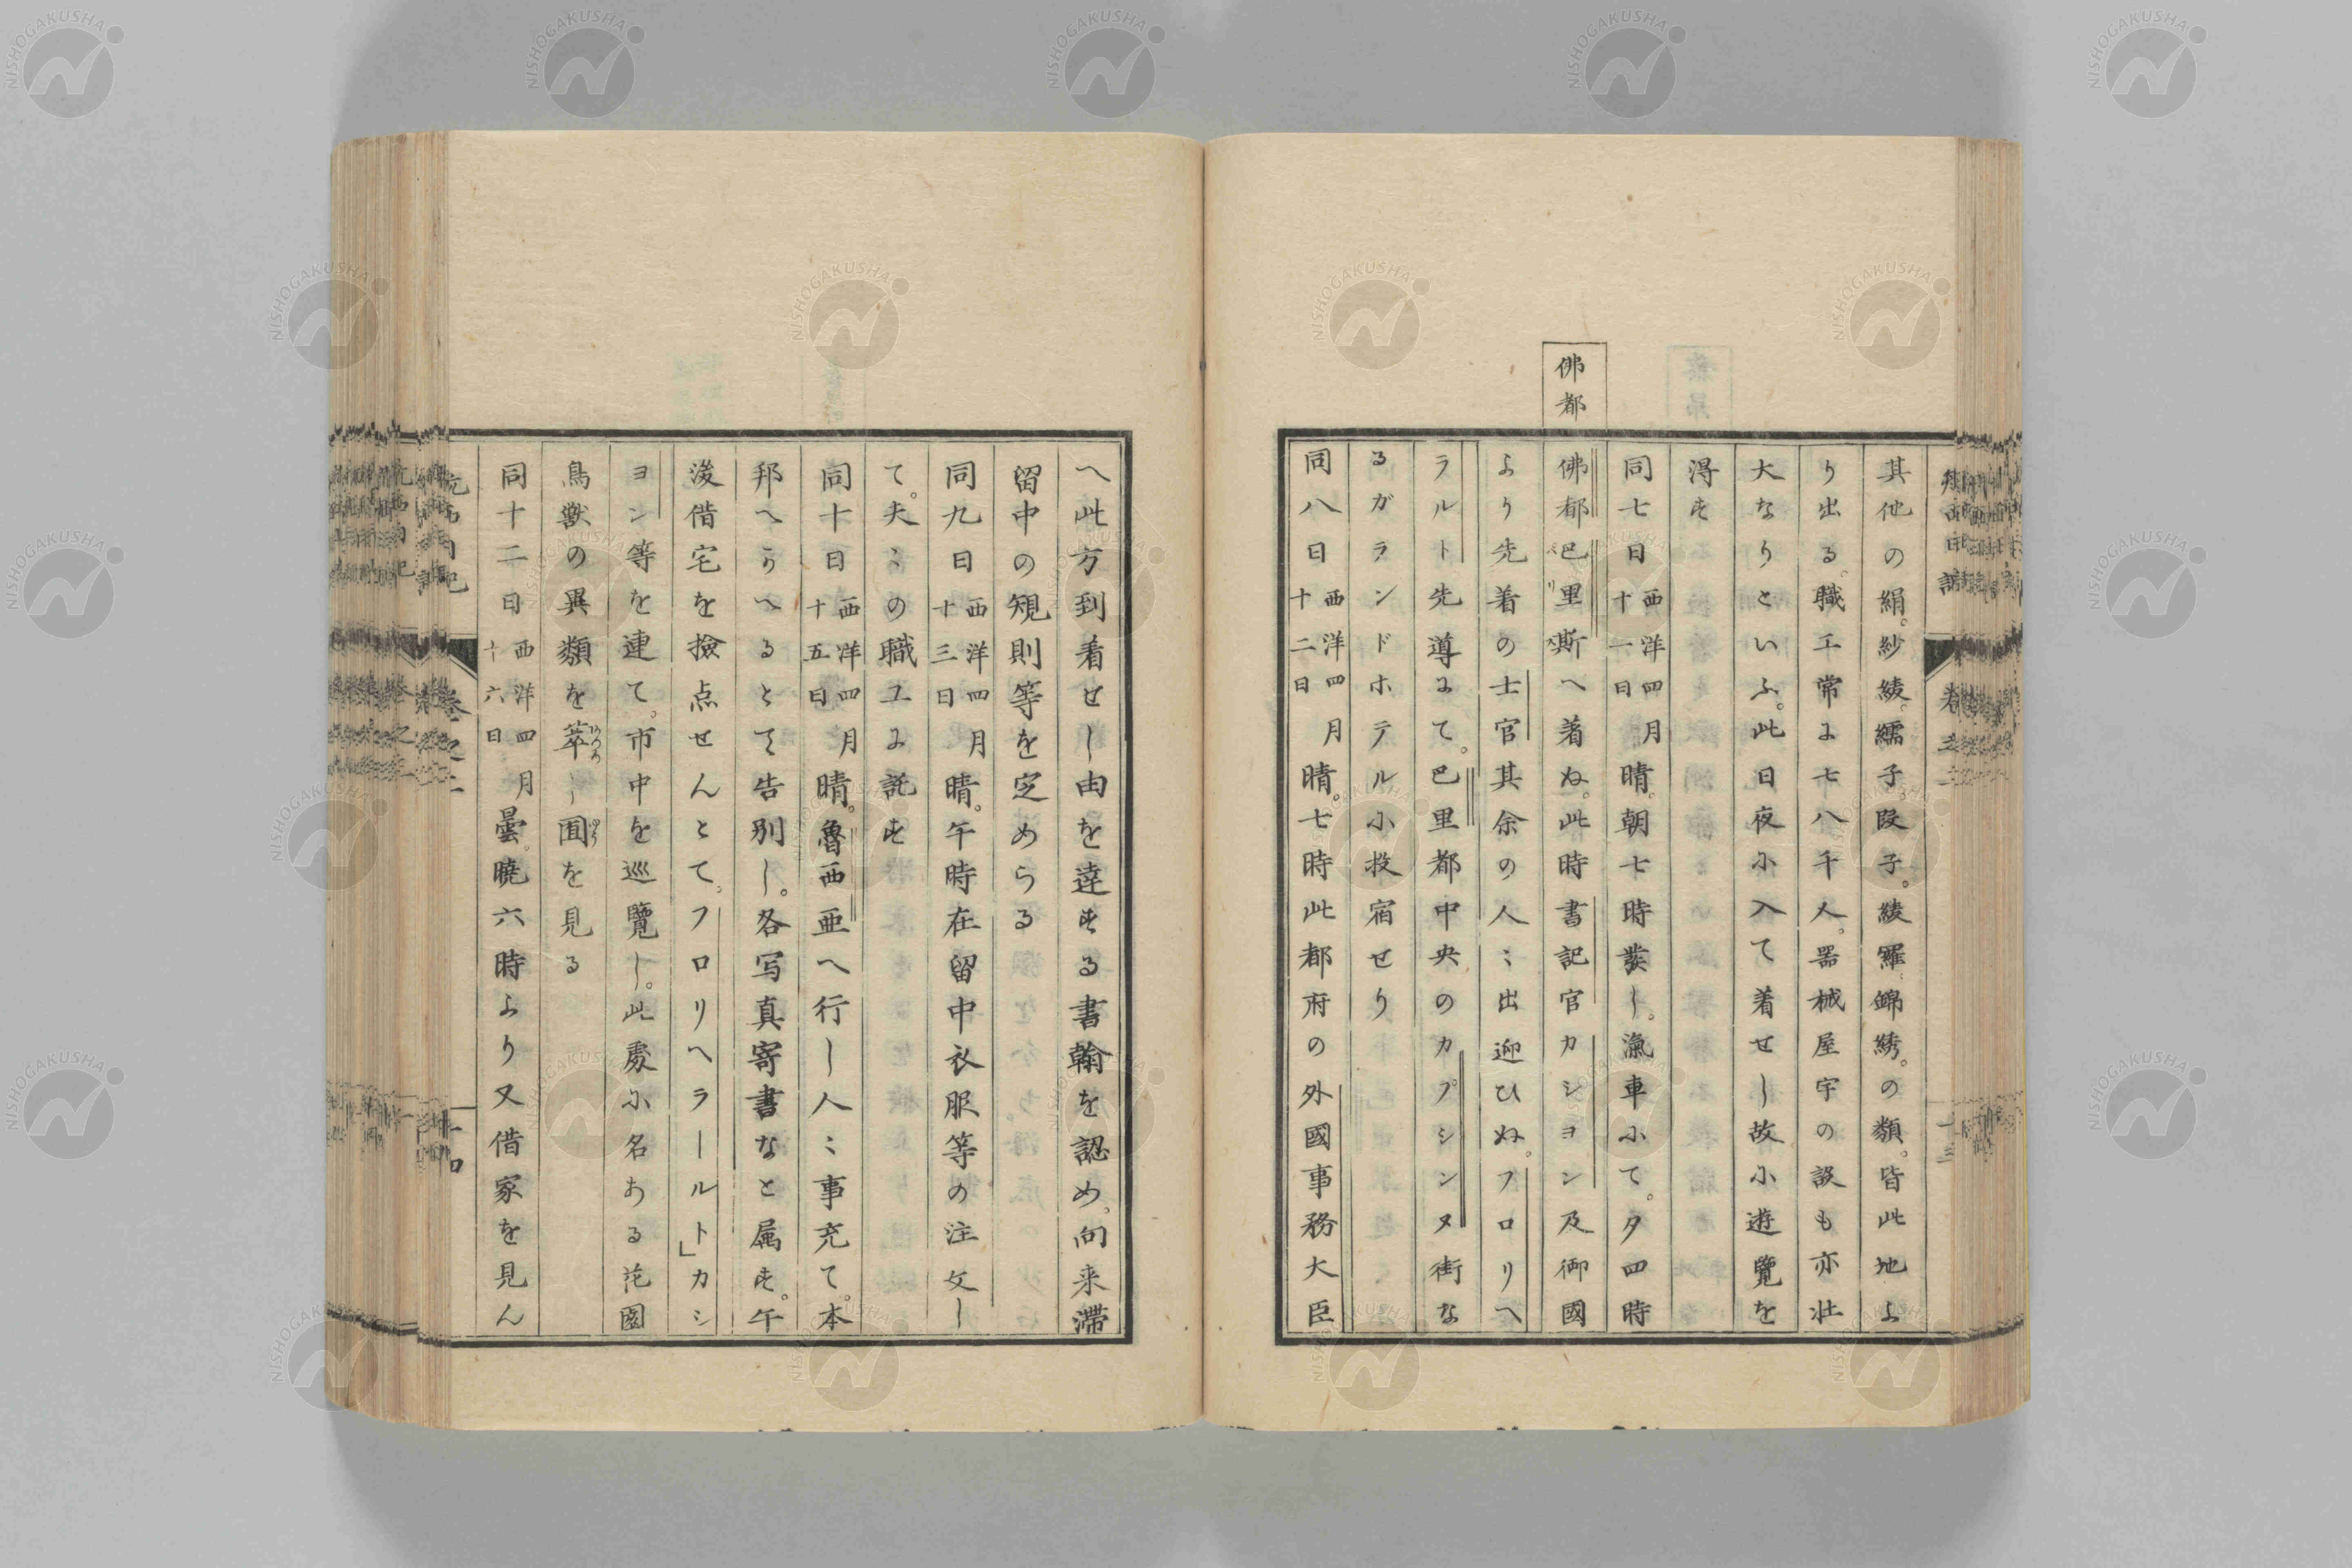 佛都
其他の絹。紗綾。繻子。段子。綾羅。錦綉。の類。皆此地よ
り出る。職工常に七八千人。器械屋宇の設も亦壮
大なりといふ。此日夜に入て着せし故に遊覧を
得ず
同七日西洋四月十一日晴。朝七時發し。滊車にて。夕四時
佛都巴里斯へ着ぬ。此時書記官カシヨン及御國
より先着の士官其余の人〻出迎ひぬ。フロリヘ
ラルト先導にて。巴里都中央のカプシンヌ街な
るガランドホテルに投宿せり
同八日西洋四月十二日晴。七時此都府の外國事務大臣
へ此方到着せし由を達する書翰を認め。向来滞
留中の規則等を定めらる
同九日西洋四月十三日晴。午時在留中衣服等の注文し
て。夫〻の職工に託す
同十日西洋四月十五日晴。魯西亜へ行し人〻事充て。本
邦へうへるとて告別し。各写真寄書なと属す。午
後借宅を撿点せんとて。フロリヘラールト」カシ
ヨン等を連て。市中を巡覧し。此處に名ある花園
鳥獣の異類を萃し囿を見る
同十二日西洋四月十六日曇。暁六時より又借家を見ん